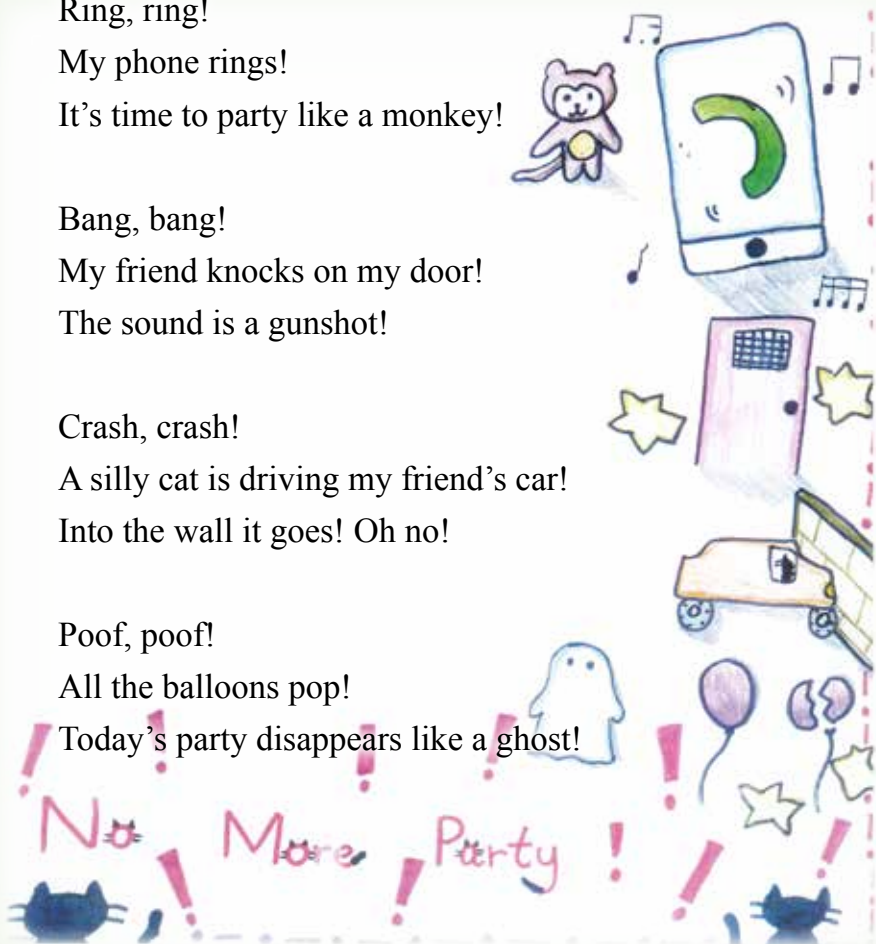 Ring, ring!
My phone rings!
It’s time to party like a monkey!
Bang, bang!
My friend knocks on my door!
The sound is a gunshot!
Crash, crash!
A silly cat is driving my friend’s car!
Into the wall it goes! Oh no!
Poof, poof!
All the balloons pop!
Today’s party disappears like a ghost!
No More Party!